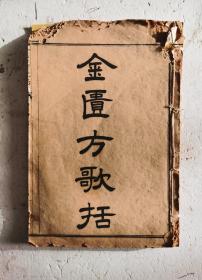 金匱方歌括